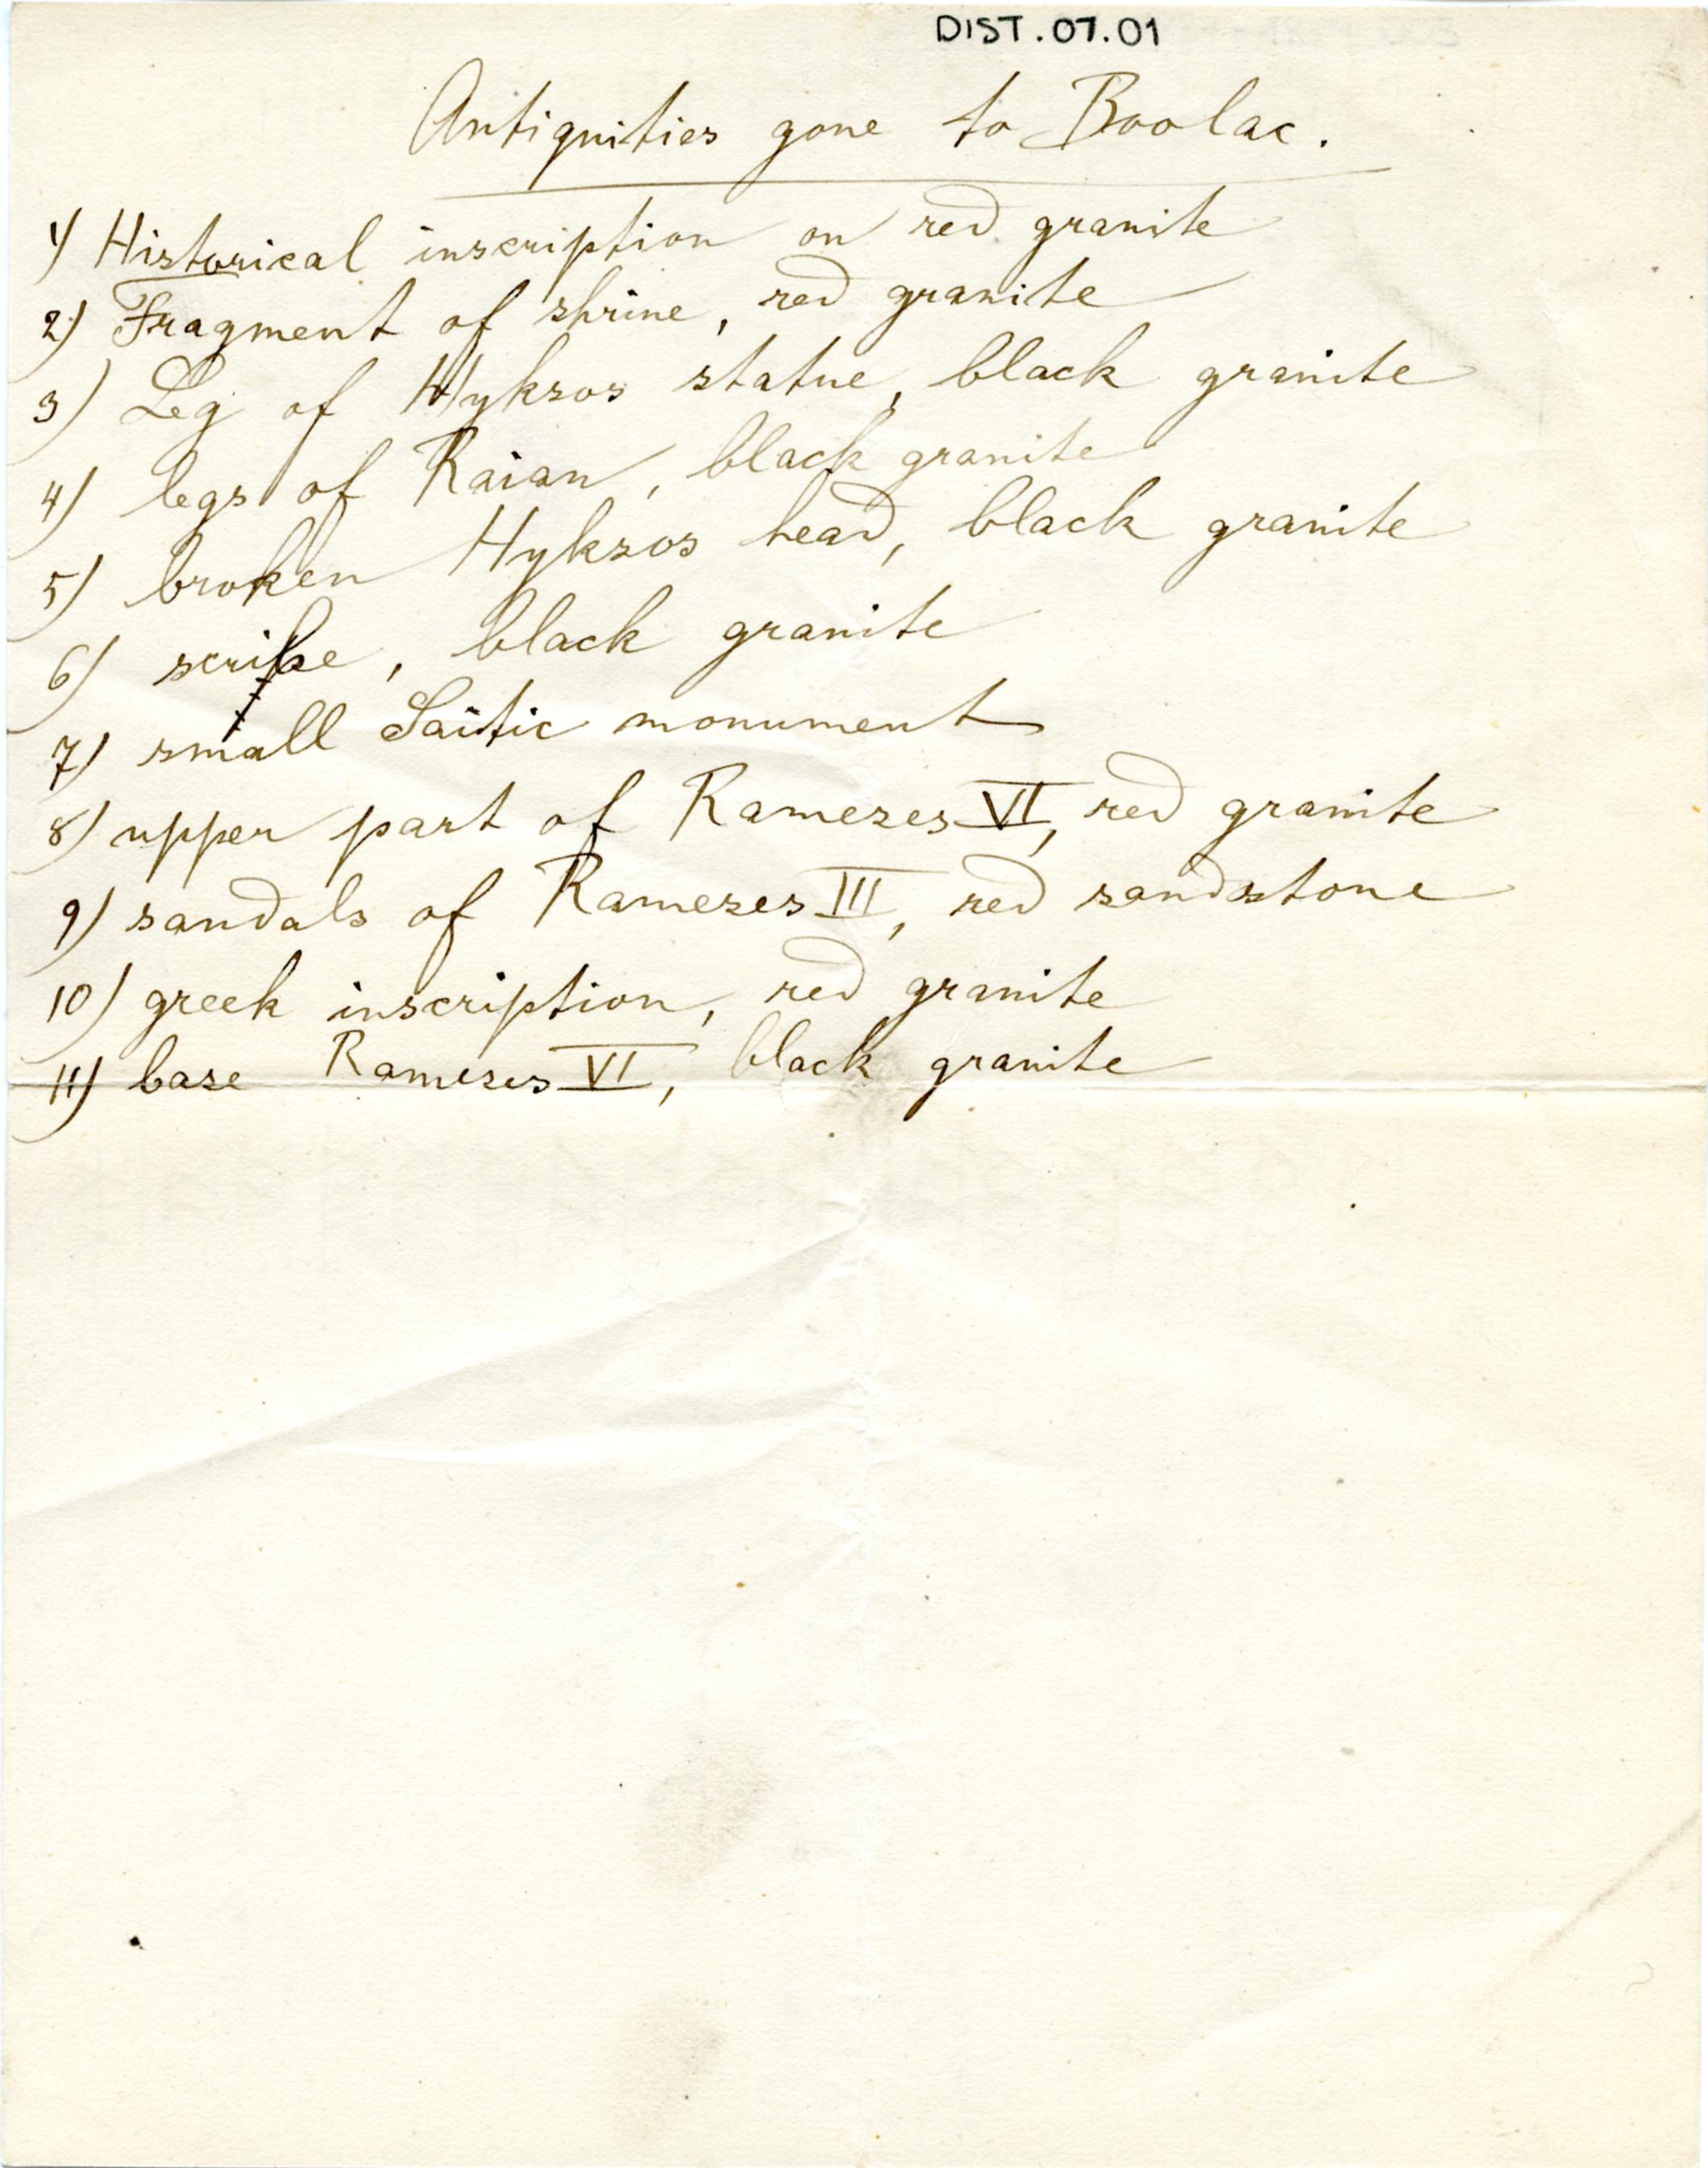 DIST.07.01
Antiquities gone to Boolac.
1) Historical inscription on red granite
2) Fragment of shrine, red granite
3) Leg of Hyksos statue, black granite
4) legs of Raian, black granite
5) broken Hyksos head, black granite
6) scribe, black granite
7) small Saïtic monument
8) upper part of Rameses VI, red granite
9) sandals of Rameses III, red sandstone
10) greek inscription, red granite
11) base Rameses VI, black granite